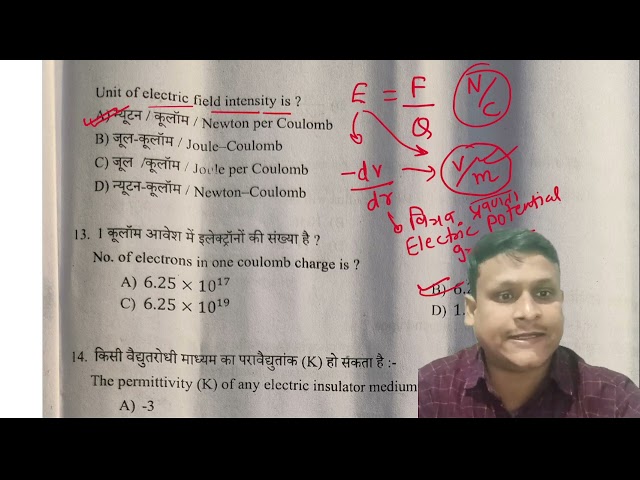 Unit of electric field intensity is ?
A) न्यूटन / कूलॉम / Newton per Coulomb
B) जूल-कूलॉम / Joule–Coulomb
C) जूल /कूलॉम / Joule per Coulomb
D) न्यूटन-कूलॉम / Newton–Coulomb
E = F/Q N/C
-dv/dr → V/m
विभव प्रवणता
Electric Potential
13. 1 कूलॉम आवेश में इलेक्ट्रॉनों की संख्या है ?
No. of electrons in one coulomb charge is ?
A) 6.25 × 10¹⁷
B) 6.2
C) 6.25 × 10¹⁹
D) 1.
14. किसी वैद्युतरोधी माध्यम का परावैद्युतांक (K) हो सकता है :-
The permittivity (K) of any electric insulator medium
A) -3